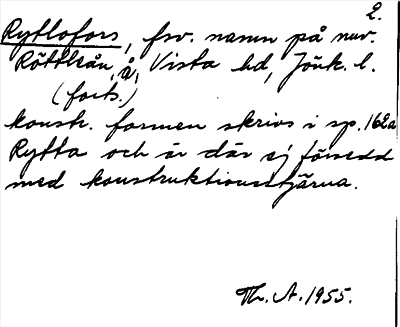 2.
Ryttofors, frv. namn på nuv.
Röttleån, å, Vista hd, Jönk. l.
(forts.)
konstr. formen skrivs i sp. 162a
Rytta och är där ej försedd
med konstruktionsstjärna.
Th. A. 1955.